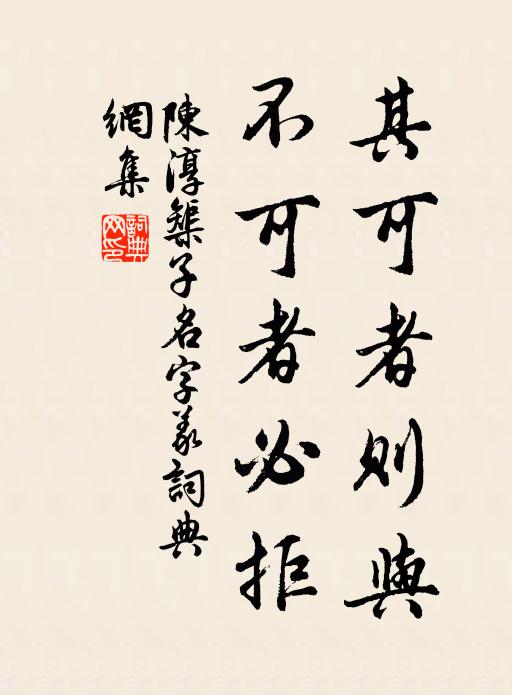 其可者則與
不可者必拒
陳淳榘子名字義詞典
網集
詞典
网印